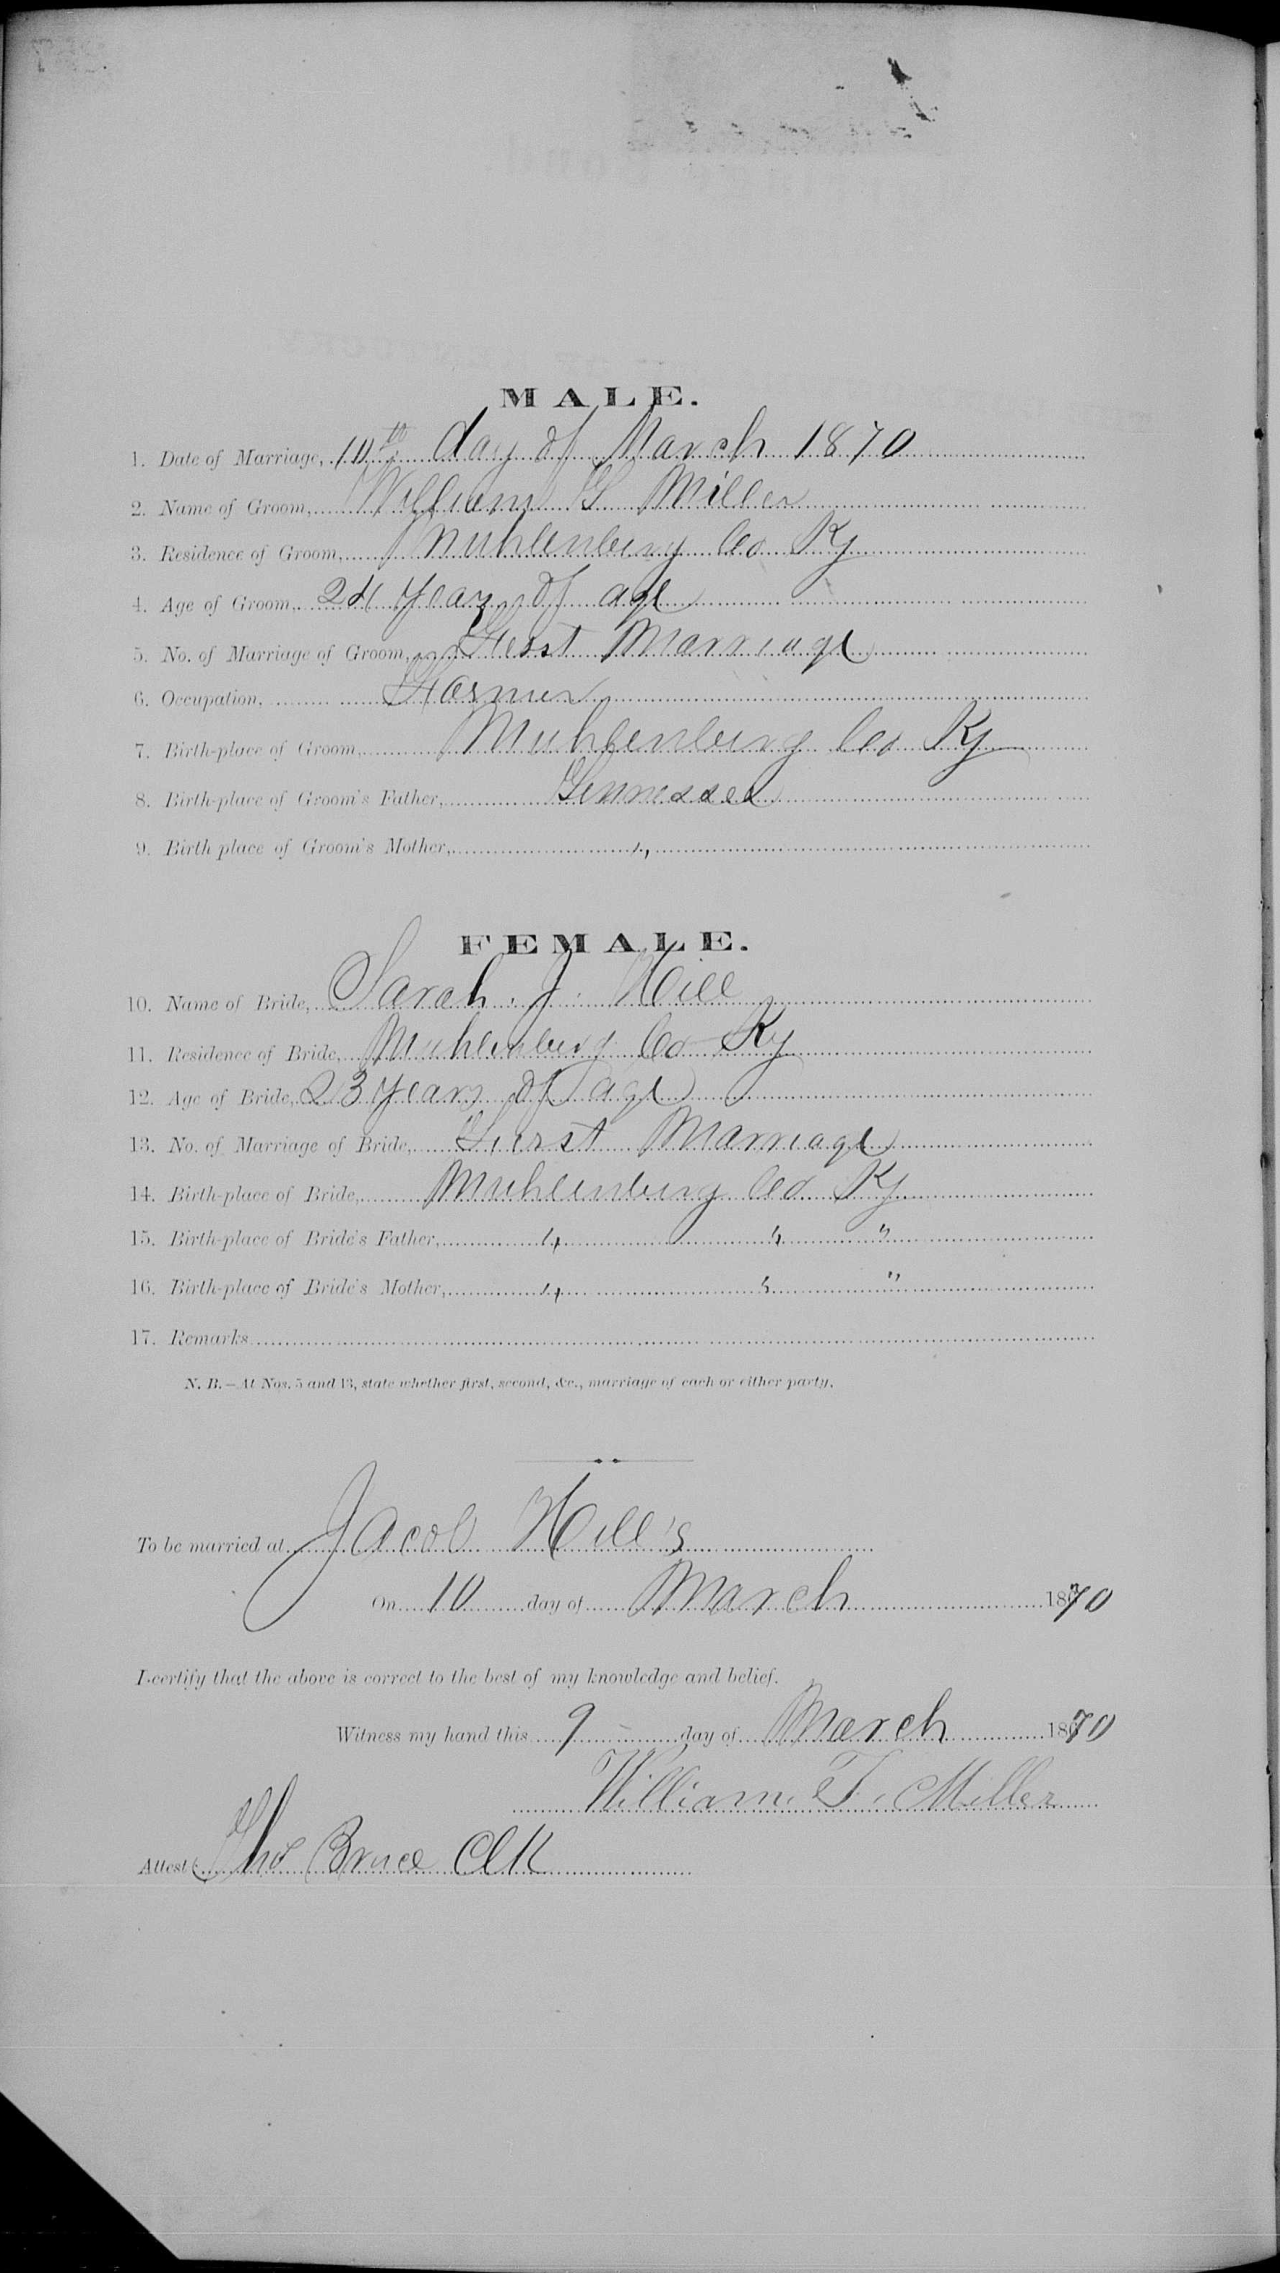 MALE.
1. Date of Marriage, 10th day of March 1870
2. Name of Groom, William T Miller
3. Residence of Groom, Muhlenberg Co Ky
4. Age of Groom, 24 years of age
5. No. of Marriage of Groom, First Marriage
6. Occupation, Farmer
7. Birth-place of Groom, Muhlenberg Co Ky
8. Birth-place of Groom's Father, Tennessee
9. Birth place of Groom's Mother, "
FEMALE.
10. Name of Bride, Sarah. J. Hill
11. Residence of Bride, Muhlenberg Co Ky
12. Age of Bride, 23 years of age
13. No. of Marriage of Bride, First Marriage
14. Birth-place of Bride, Muhlenberg Co Ky
15. Birth-place of Bride's Father, " " "
16. Birth-place of Bride's Mother, " " "
17. Remarks
N. B.—At Nos. 5 and 13, state whether first, second, &c., marriage of each or either party.
To be married at Jacob Hill's
On 10 day of March 1870
I certify that the above is correct to the best of my knowledge and belief.
Witness my hand this 9 day of March 1870
William. T. Miller
Attest: Tho Bruce Clk